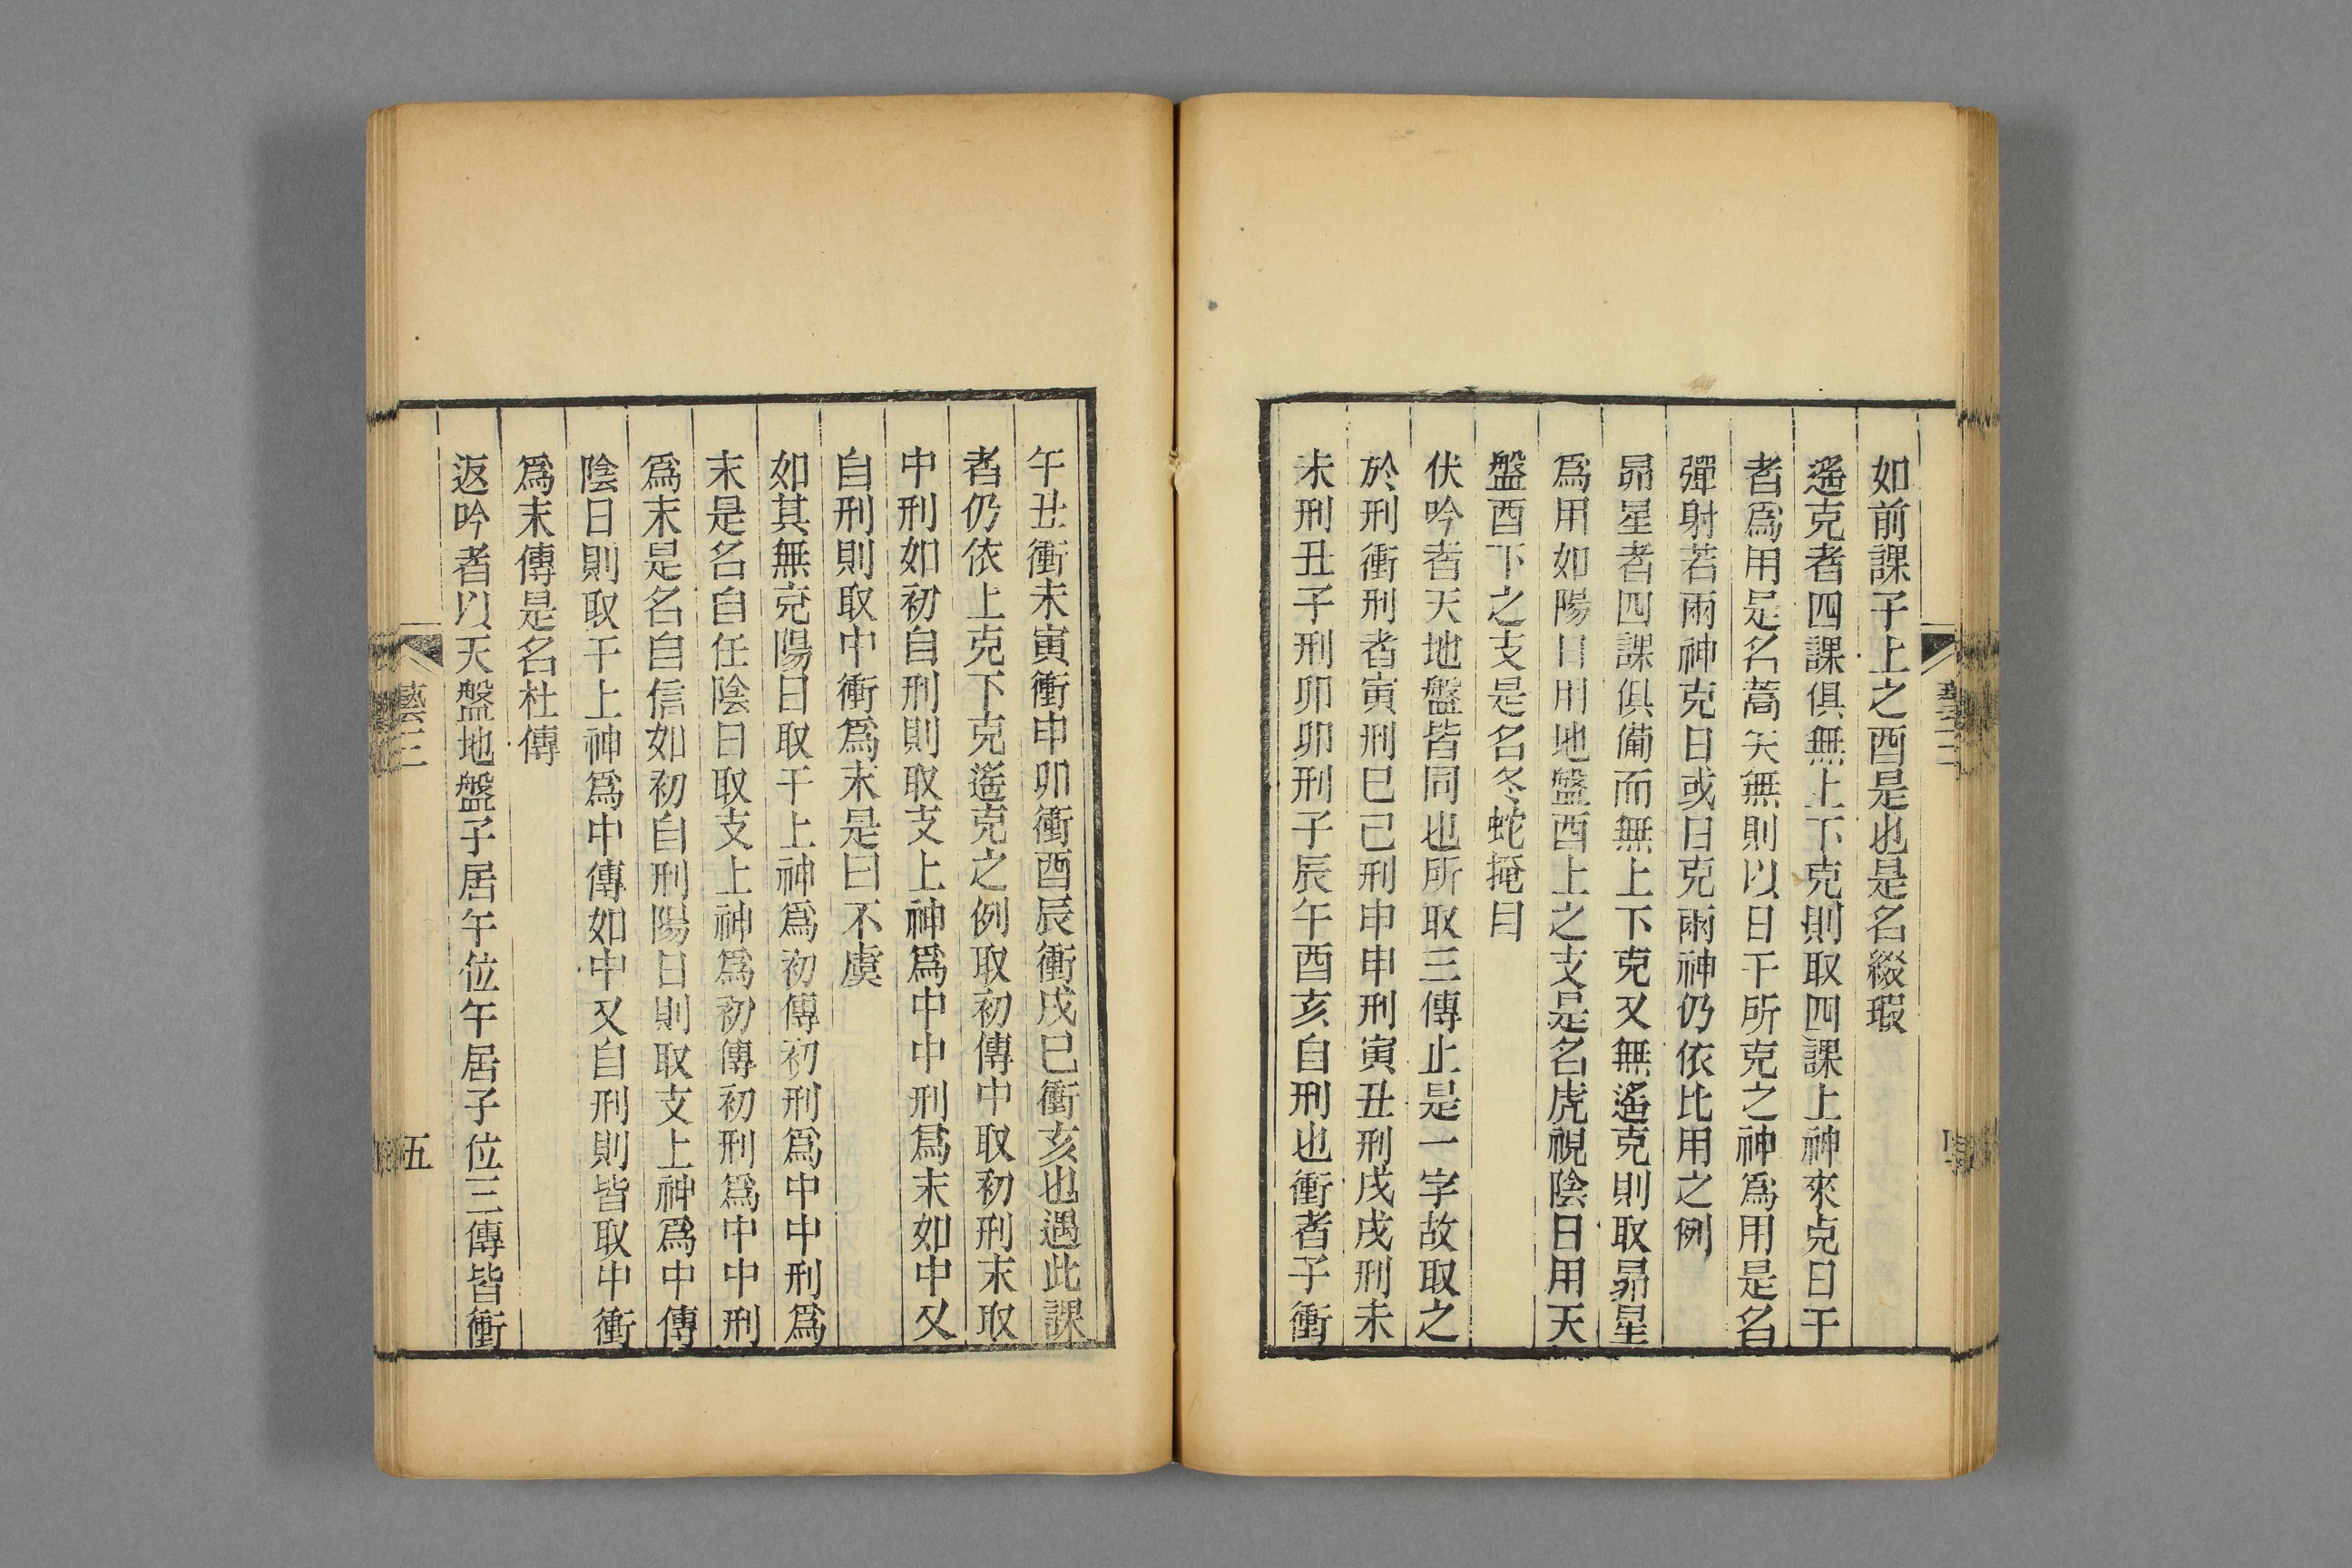 如前課子上之酉是也是名綴瑕
遙克者四課俱無上下克則取四課上神來克日干
者爲用是名蒿矢無則以日干所克之神爲用是名
彈射若兩神克日或日克兩神仍依比用之例
昴星者四課俱備而無上下克又無遙克則取昴星
爲用如陽日用地盤酉上之支是名虎視陰日用天
盤酉下之支是名冬蛇掩目
伏吟者天地盤皆同也所取三傳止是一字故取之
於刑衝刑者寅刑巳巳刑申申刑寅丑刑戌戌刑未
未刑丑子刑卯卯刑子辰午酉亥自刑也衝者子衝
午丑衝未寅衝申卯衝酉辰衝戌巳衝亥也遇此課
者仍依上克下克遙克之例取初傳中取初刑末取
中刑如初自刑則取支上神爲中中刑爲末如中又
自刑則取中衝爲末是曰不虞
如其無克陽日取干上神爲初傳初刑爲中中刑爲
末是名自任陰日取支上神爲初傳初刑爲中中刑
爲末是名自信如初自刑陽日則取支上神爲中傳
陰日則取干上神爲中傳如中又自刑則皆取中衝
爲末傳是名杜傳
返吟者以天盤地盤子居午位午居子位三傳皆衝
藝三
五